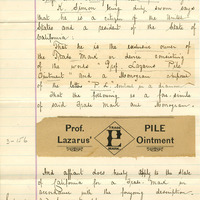 L. Simon being duly sworn says
that he is a citizen of the United
States and a resident of the State of
California.
That he is the exclusive owner of
the Trade Mark or device consisting
of the words "Prof Lazarus' Pile
Ointment" and a Monogram composed
of the letters
That the following is a fac-simile
of said Trade Mark and Monogram.
Prof. Lazarus'
TRADE
PILE Ointment
And affiant does hereby apply to the State
of California for a Trade Mark in
accordance with the foregoing description.